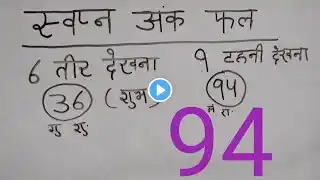 स्वप्न अंक फल
6 तीर देखना
36 (शुभ)
गु शु.
९ टहनी देखना
९४
मं रा.
94